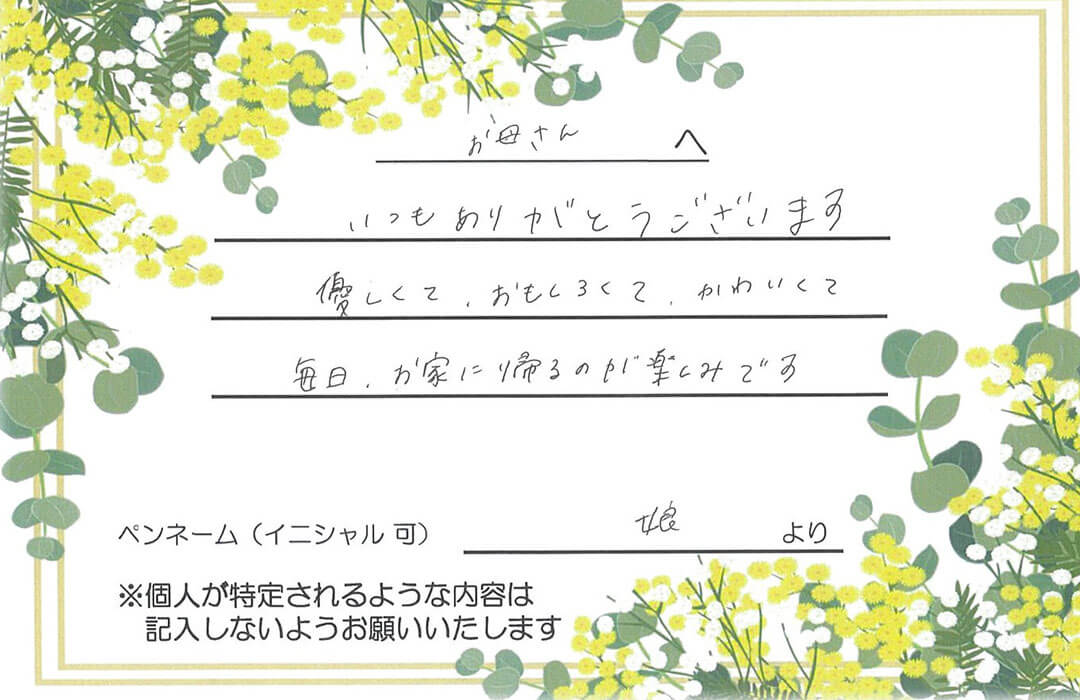 お母さん へ
いつもありがとうございます
優しくて、おもしろくて、かわいくて
毎日、お家に帰るのが楽しみです
ペンネーム（イニシャル 可） 娘 より
※個人が特定されるような内容は
記入しないようお願いいたします